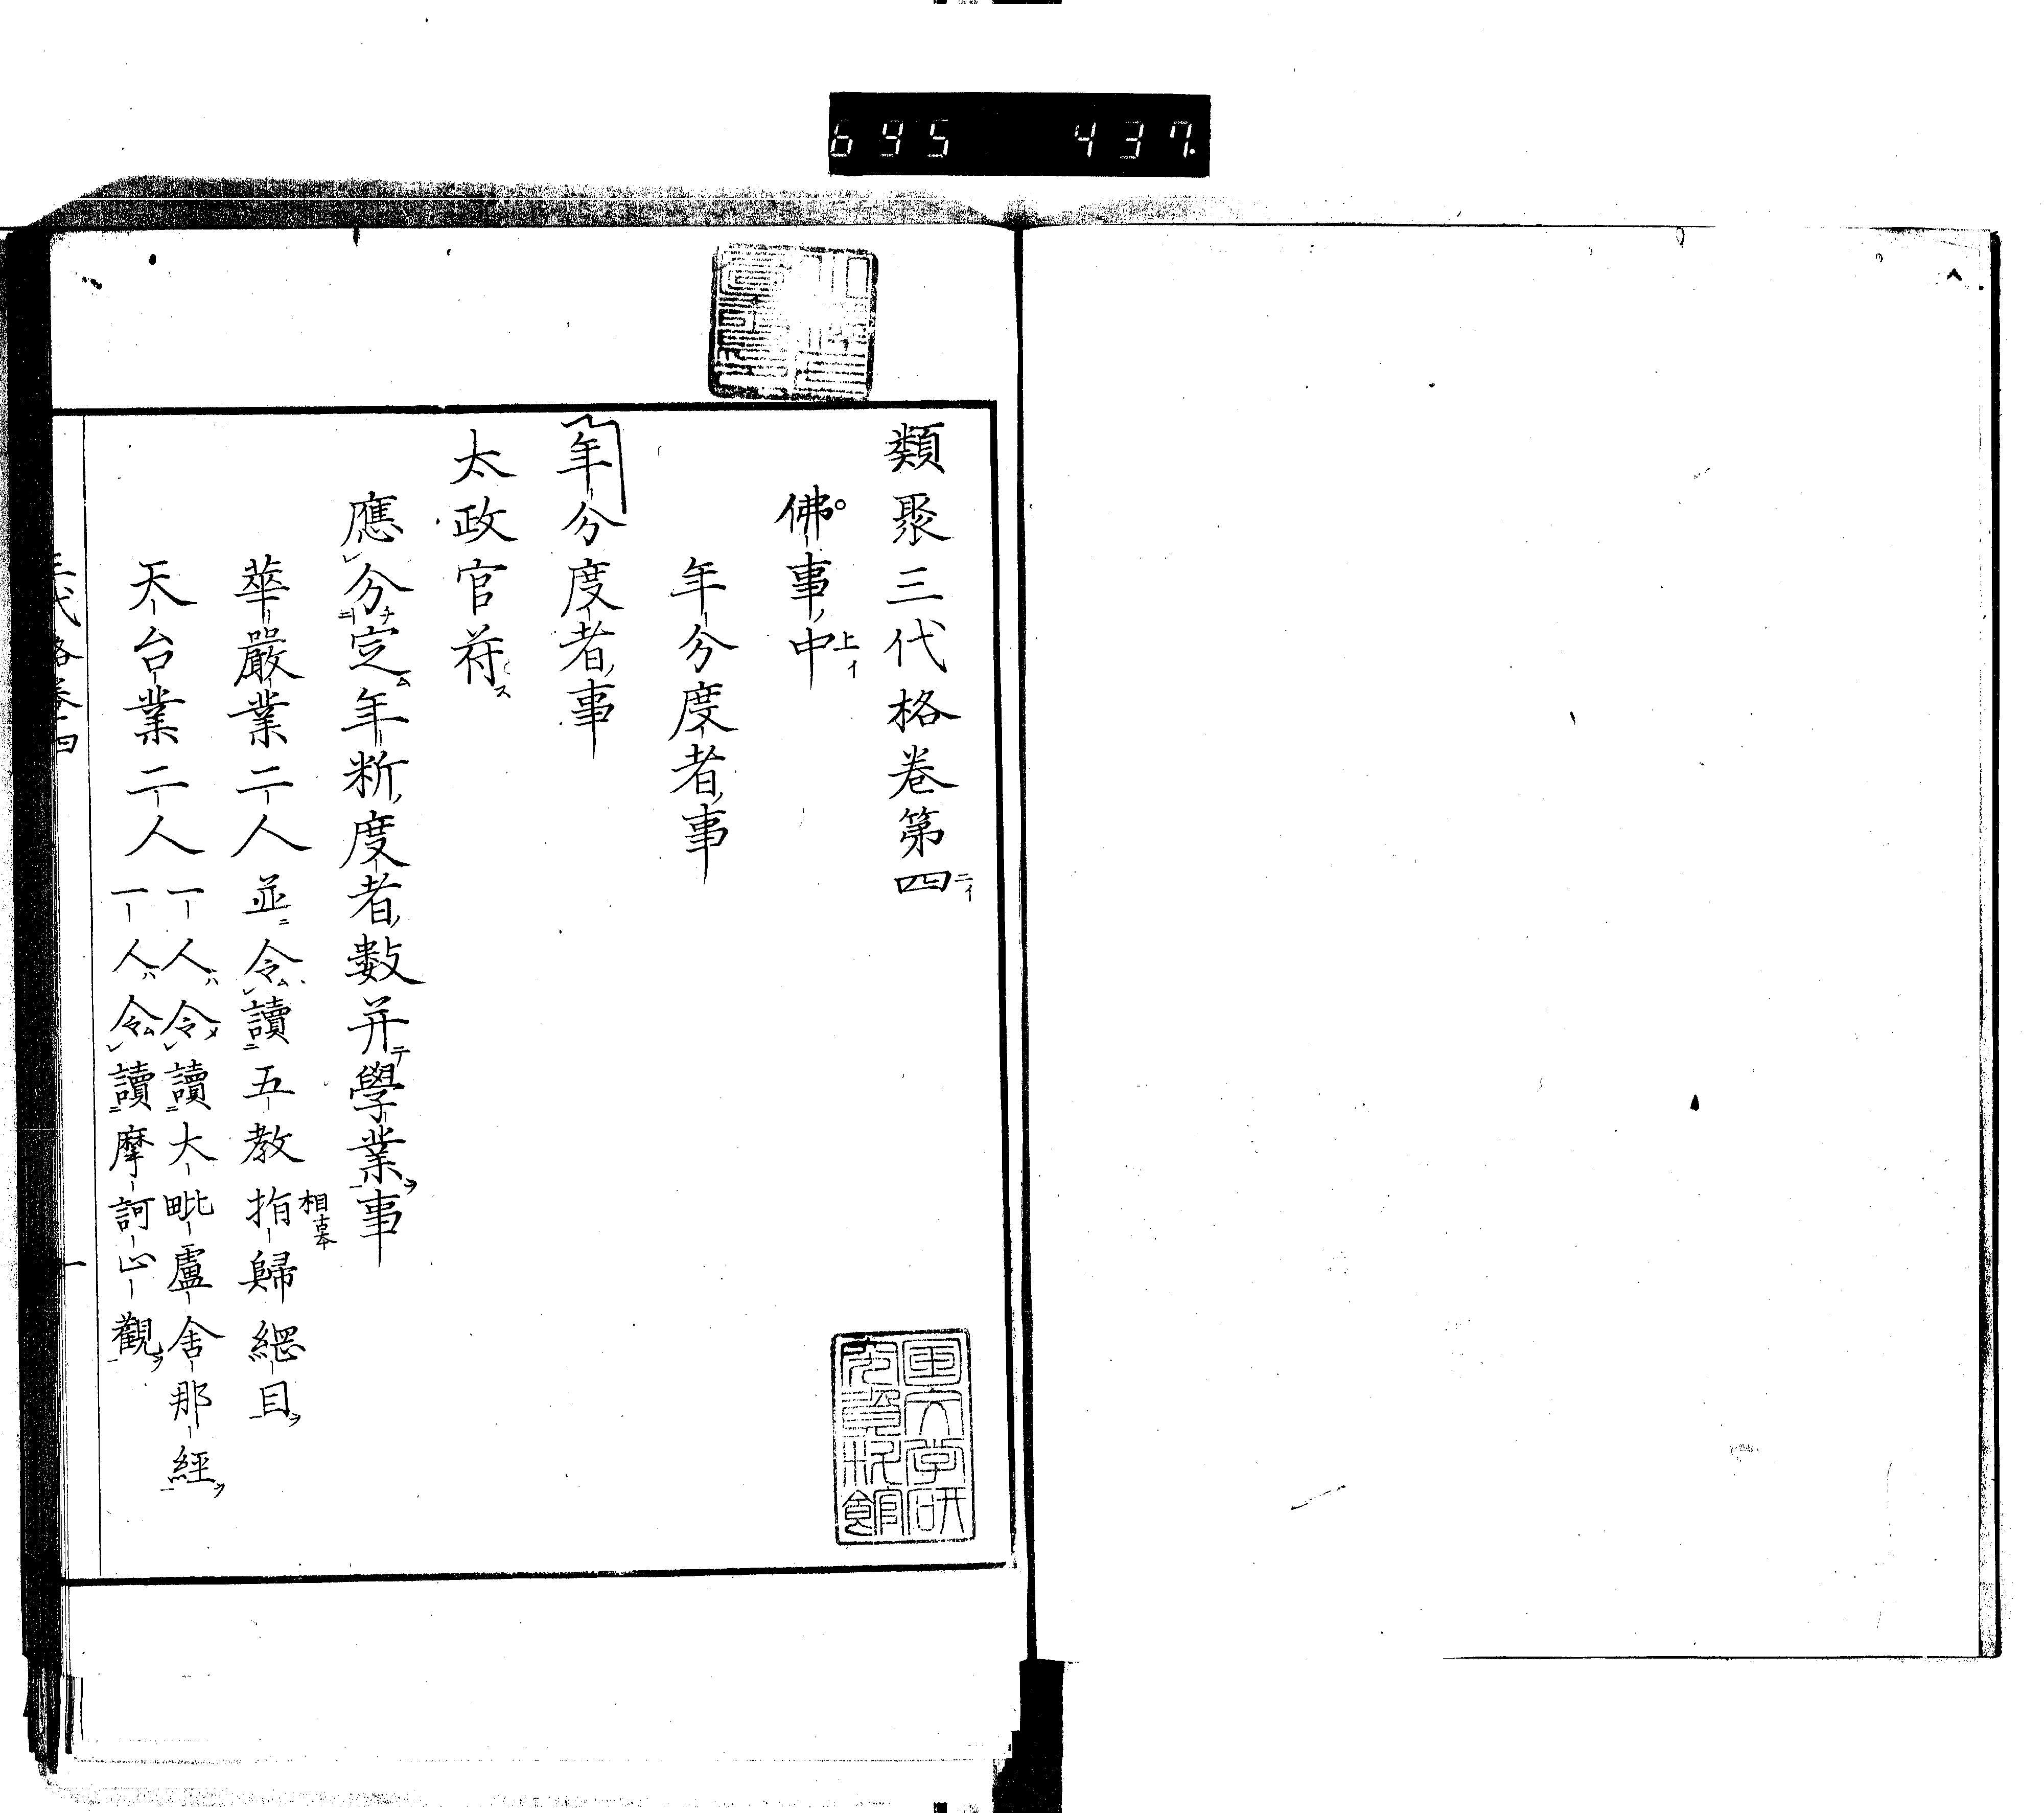 695 437.
類聚三代格卷第四 二イ
佛事中 上イ
年分度者事
年分度者事
太政官符
應分定年料度者數并學業事
華嚴業二人 並令讀五教指歸綱目
相古本
天台業二人 一人令讀大毗盧舍那經
一人令讀摩訶止觀
三代格卷四 一
国文学研
究資料館